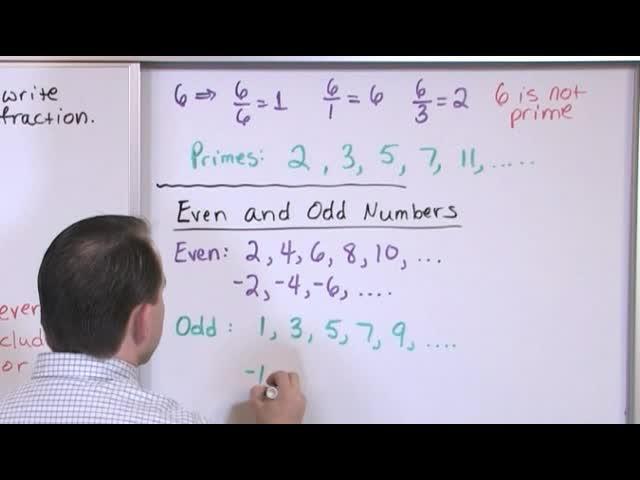 write
fraction.
6 ⇒ 6/6 = 1 6/1 = 6 6/3 = 2 6 is not
prime
Primes: 2, 3, 5, 7, 11, .....
Even and Odd Numbers
Even: 2, 4, 6, 8, 10, ...
-2, -4, -6, ....
Odd: 1, 3, 5, 7, 9, ....
-1
or